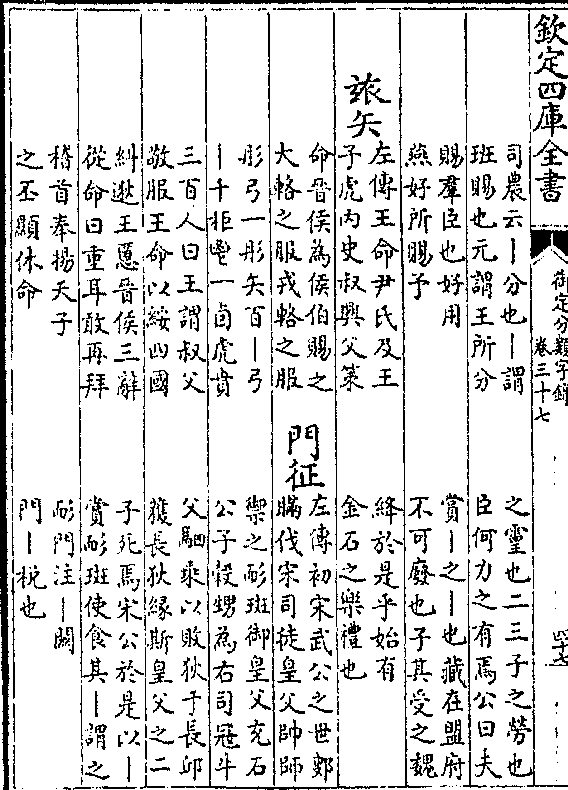 欽定四庫全書
御定分類字錦
卷三十七
四十七
司農云丨分也丨謂
班賜也元謂王所分
賜羣臣也好用
燕好所賜予
玈矢
左傳王命尹氏及王
子虎内史叔興父策
命晉侯為侯伯賜之
大輅之服戎輅之服
彤弓一彤矢百丨弓
丨千秬鬯一卣虎賁
三百人曰王謂叔父
敬服王命以綏四國
糾逖王慝晉侯三辭
從命曰重耳敢再拜
稽首奉揚天子
之丕顯休命
之靈也二三子之勞也
臣何力之有焉公曰夫
賞丨之丨也藏在盟府
不可廢也子其受之魏
絳於是乎始有
金石之樂禮也
門征
左傳初宋武公之世鄋
瞞伐宋司徒皇父帥師
禦之耏班御皇父充石
公子榖甥為右司冦牛
父駟乘以敗狄于長邱
獲長狄緣斯皇父之二
子死焉宋公於是以丨
賞耏班使食其丨謂之
耏門注丨關
門丨稅也